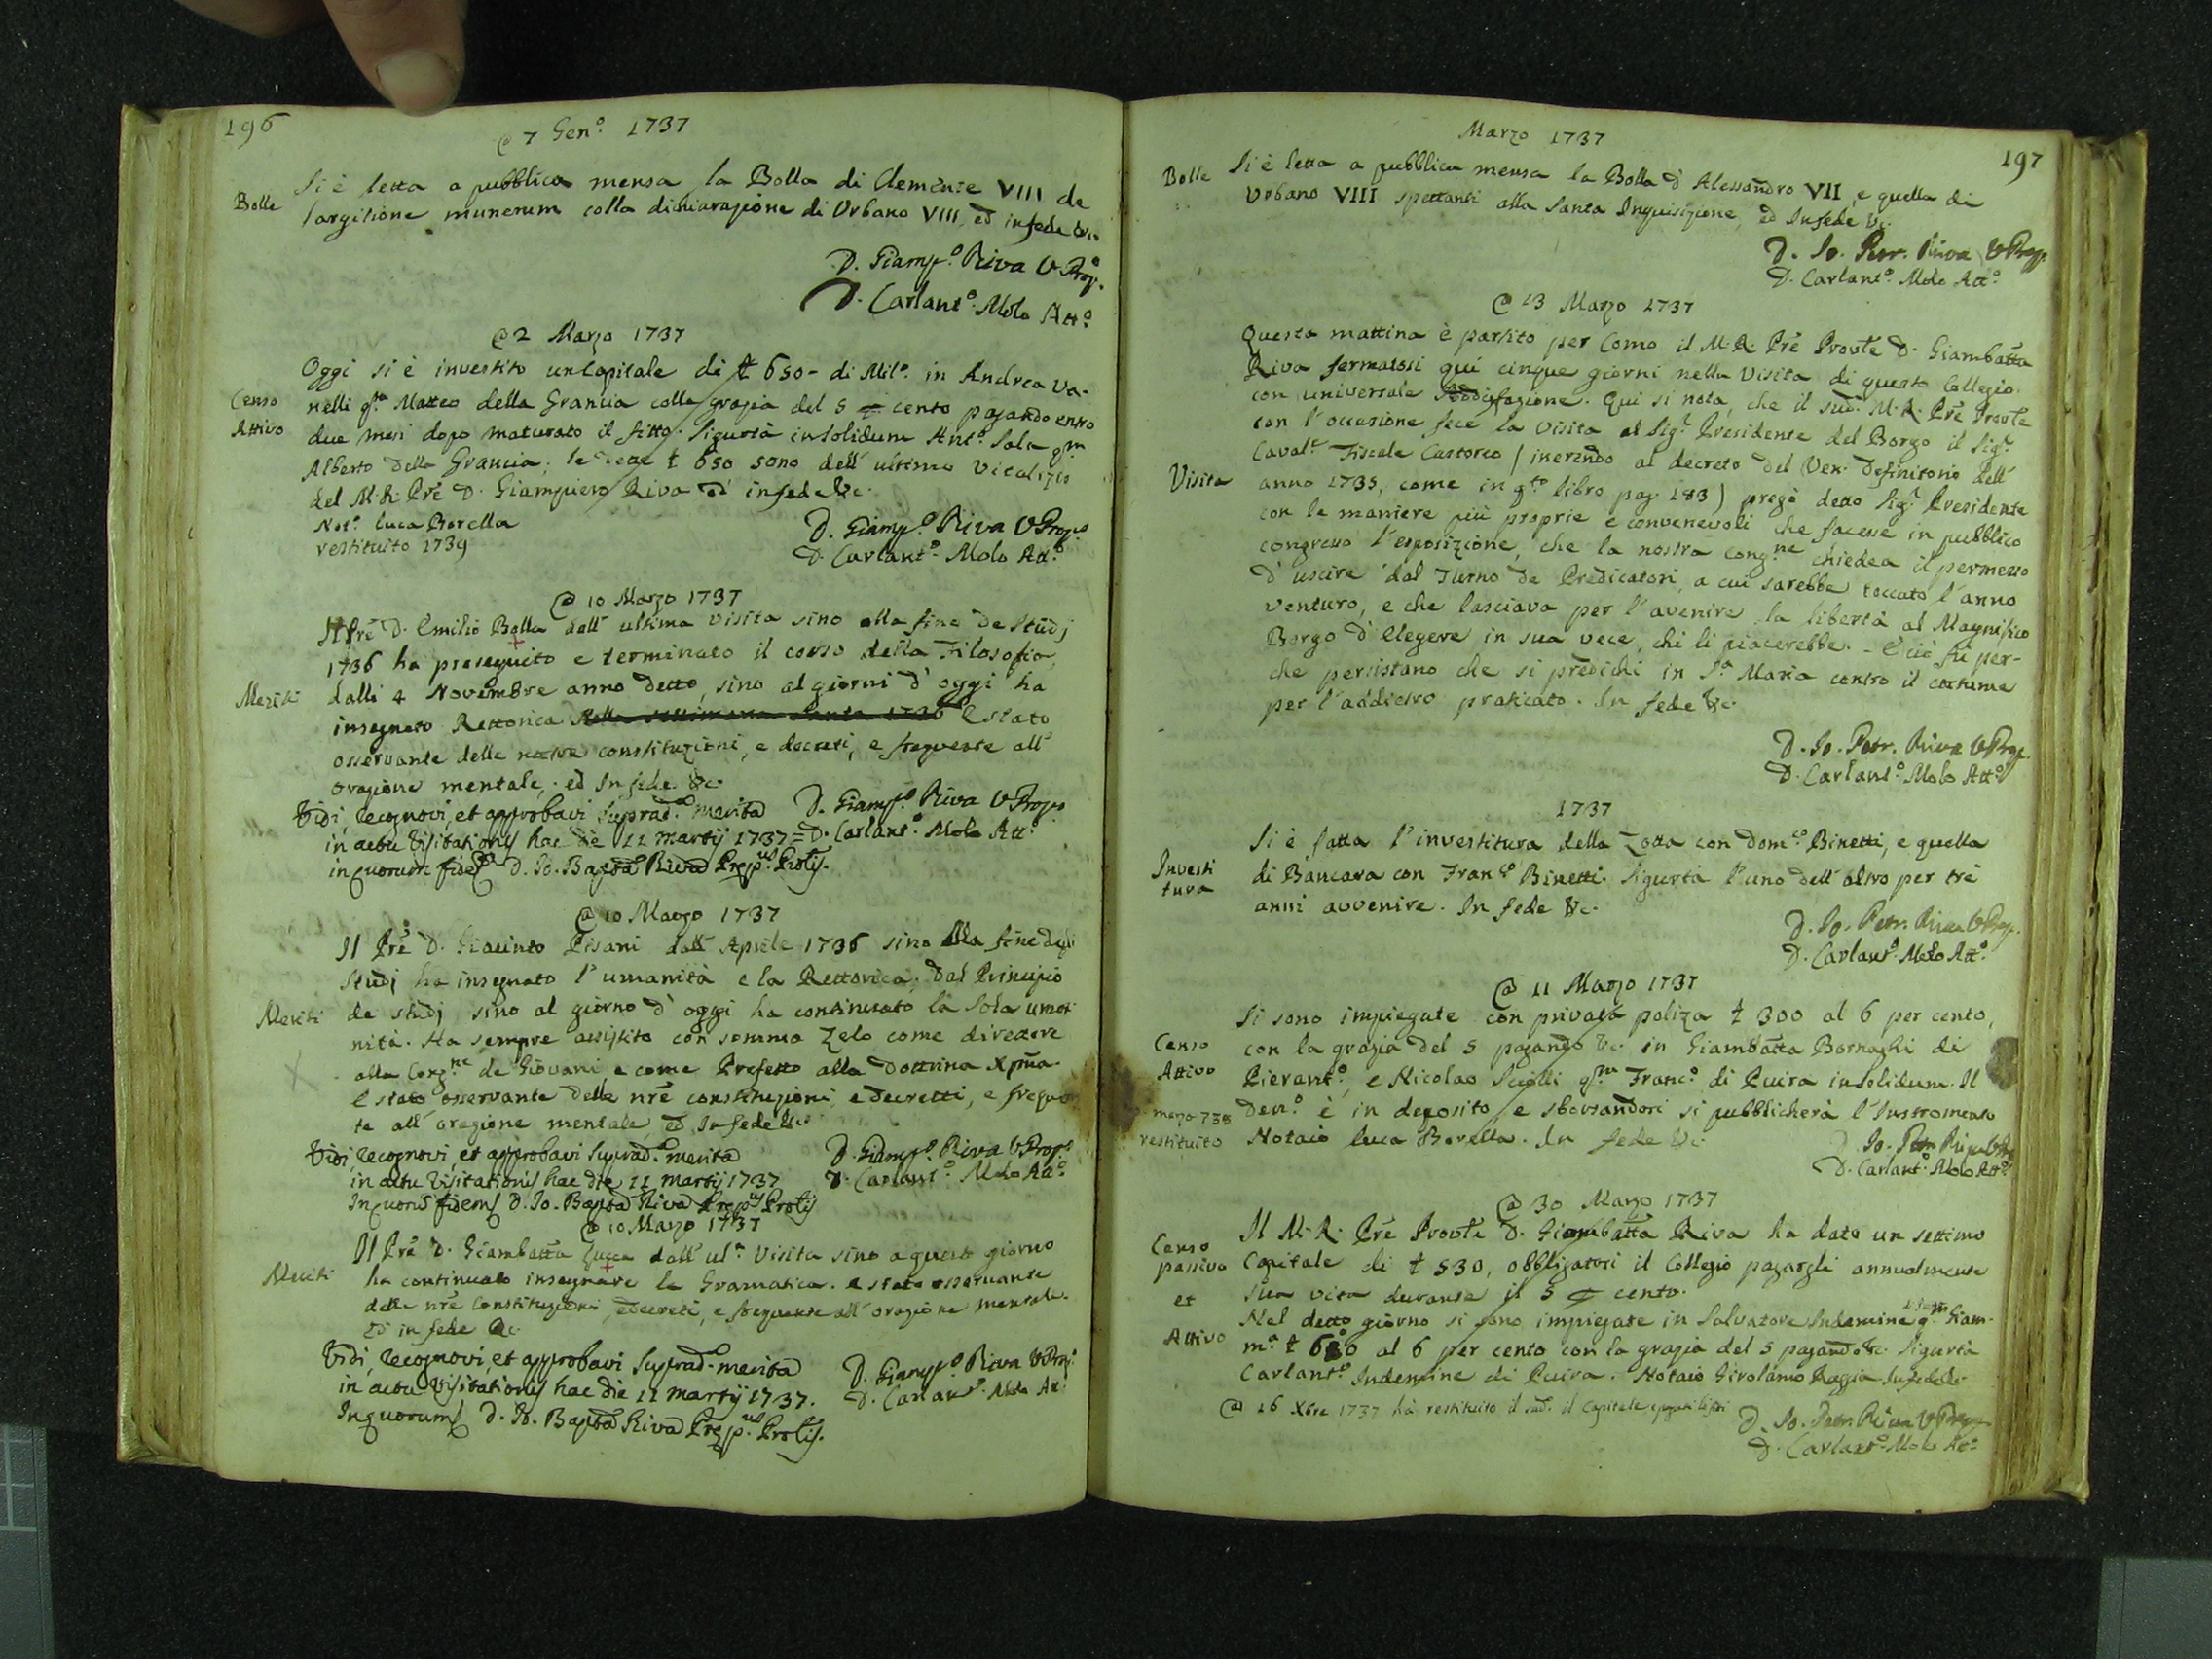 196
@ 7 Gen.o 1737
Bolle
Si è letta a pubblica mensa la Bolla di Clemente VIII de
largitione munerum colla dichiarazione di Urbano VIII, ed in fede &c.
D. Giamp.o Riva V Prop.o
D. Carlant.o Molo Att.o
@ 2 Marzo 1737
Censo
Attivo
Oggi si è investito un Capitale di ₤ 650 - di Mil.o in Andrea Va-
nelli q.m Matteo della Grancia colla grazia del 5 per cento pagando entro
due mesi dopo maturato il fitto. Sigurtà in solidum Ant.o Sala q.m
Alberto della Grancia; le dette ₤ 650 sono dell' ultimo vitalizio
del M. R. Prē D. Giampiero Riva ed in fede &c.
Not.o Luca Borella
restituito 1739
D. Giamp.o Riva V Prop.o
D. Carlant.o Molo Att.o
@ 10 Marzo 1737
Meriti
Il Prē D. Emilio Bolla dall' ultima visita sino alla fine de Studj
1736 ha proseguito e terminato il corso della Filosofia,
dalli 4 Novembre anno detto, sino al giorni d' oggi ha
insegnato Rettorica È stato
osservante delle nostre constituzioni, e decreti, e frequente all'
orazione mentale, ed In fede &c.
Vidi, recognovi, et approbavi suprad.a merita
in actu Visitationis hac die 11 martij 1737 =
in quorum fidem D. Jo. Bapta Riva Prep.us Prolis.
D. Giamp.o Riva V Prop.o
D. Carlant.o Molo Att.o
@ 10 Marzo 1737
Meriti
Il Prē D. Giacinto Pisani dall' Aprile 1736 sino alla fine degli
Studj ha insegnato l' umanità e la Rettorica. Dal Principio
de studj sino al giorno d' oggi ha continuato la sola uma-
nità. Ha sempre assistito con sommo zelo come direttore
alla Cong.ne de Giovani e come Prefetto alla Dottrina Xpna.
È stato osservante delle nrē constituzioni, e decretti, e frequen
te all' orazione mentale, ed In fede &c.
Vidi recognovi, et approbavi suprad.a merita
in actu Visitationis hac die 11 martij 1737
In quorū fidem D. Jo. Bapta Riva Prep.us Prolis
D. Giamp.o Riva V Prop.o
D. Carlant.o Molo Att.o
@ 10 Marzo 1737
Meriti
Il Prē D. Giambatta Zucca dall' ul.a Visita sino a questo giorno
ha continuato insegnare la Gramatica. È stato osservante
delle nrē Constituzioni, e decreti, e frequente all' orazione mentale.
Ed in fede &c.
Vidi, recognovi, et approbavi suprad.a merita
in actu Visitationis hac die 11 martij 1737.
In quorum D. Jo. Bapta Riva Prep.us Prolis.
D. Giamp.o Riva V Prop.
D. Carlant.o Molo Att.
197
Marzo 1737
Bolle
Si è letta a pubblica mensa la Bolla d' Alessandro VII, e quella di
Urbano VIII spettanti alla Santa Inquisizione, ed In fede &c.
D. Jo. Petr. Riva V Prop.
D. Carlant.o Molo Att.o
@ 13 Marzo 1737
Visita
Questa mattina è partito per Como il M. R. Prē Provle D. Giambatta
Riva fermatosi quì cinque giorni nella visita di questo Collegio
con universale soddisfazione. Qui si nota, che il sud. M. R. Prē Provle
con l' occasione fece la visita al Sig.r Presidente del Borgo il Sig.r
Caval.r Fiscale Castoreo / inerendo al decreto del Ven. Definitorio dell'
anno 1735, come in q.to libro pag. 183) pregò detto Sig.r Presidente
con le maniere più proprie e convenevoli che facesse in pubblico
congresso l' esposizione, che la nostra cong.ne chiedea il permesso
d' uscire dal Turno de Predicatori, a cui sarebbe toccato l' anno
venturo, e che lasciava per l' avenire la libertà al Magnifico
Borgo d' elegere in sua vece, chi li piacerebbe. - E ciò fù per-
che persistano che si predichi in S.a Maria contro il costume
per l' addietro praticato. In fede &c.
D. Jo. Petr. Riva V Prop.
D. Carlant.o Molo Att.o
1737
Investi
tura
Si è fatta l' investitura della Zotta con Dom.co Binetti, e quella
di Bancora con Fran.co Binetti. Sigurtà l' uno dell' altro per trè
anni avvenire. In fede &c.
D. Jo. Petr. Riva V Prop.
D. Carlant.o Molo Att.o
@ 11 Marzo 1737
Censo
Attivo
marzo 738
restituito
Si sono impiegate con privata poliza ₤ 300 al 6 per cento,
con la grazia del 5 pagando &c. in Giambatta Bornaghi di
Pierant.o, e Nicolao Scilli q.m Franc.o di Quira in solidum. Il
den.o è in deposito, e sborsandosi si pubblicherà l' Instromento
Notaio Luca Borella. In fede &c.
Jo. Petr. Riva V Pro
D. Carlant.o Molo Att.o
@ 30 Marzo 1737
Censo
passivo
et
Attivo
Il M. R. Prē Provle D. Giambatta Riva ha dato un settimo
Capitale di ₤ 530, obbligatosi il Collegio pagargli annualmente
sua vita durante il 5 per cento.
Nel detto giorno si sono impiegate in Salvatore Indemine q.m Giam-
m.a ₤ 6 0 al 6 per cento con la grazia del 5 pagando &c. Sigurtà
Carlant.o Indemine di Quira. Notaio Girolamo Ruggia In fede &c.
@ 16 Xbre 1737 hà restituito il sud. il Capitale, e pagati li fitti
D. Jo. Petr. Riva V Prop.
D. Carlant.o Molo Att.o